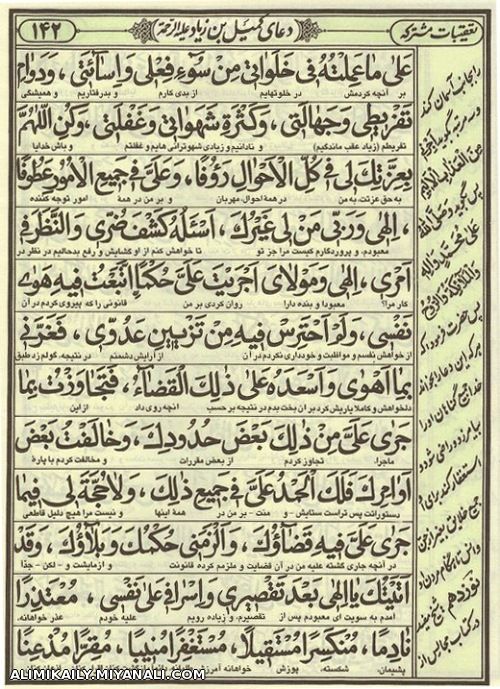 تعقیبات مشترکه
دعای کمیل بن زیاد علیه الرحمة
۱۴۲
عَلى ما عَمِلْتُهُ فى خَلَواتى مِنْ سُوَءِ فِعْلى وَاِساَّئَتى ، وَدَوامِ
بر آنچه کردمش در خلوتهایم از بدی کارم و بدرفتاریم و همیشگی
تَفْريطى وَجَهالَتى ، وَكَثْرَةِ شَهَواتى وَغَفْلَتى ، وَكُنِ اللّهُمَّ
تفریطم (زیاد عقب ماندگیم) و نادانیم و زیادی شهوترانی هایم و غفلتم و باش خدایا
بِعِزَّتِكَ لى فى كُلِّ الْاَحْوالِ رَؤُفًا ، وَعَلَىَّ فى جَميعِ الْاُمُورِ عَطُوفًا
به حق عزتت، به من در همهٔ احوال، مهربان و بر من در همهٔ امور توجه کننده
، اِلهى وَرَبّى مَنْ لى غَيْرُكَ ، اَسْئَلُهُ كَشْفَ ضُرّى وَالنَّظَرَ فى
معبودم، و پروردگارم کیست مرا جز تو تا خواهش کنم از او گشایش و رفع بدحالیم در نظر در
اَمْرى ، اِلهى وَمَوْلاىَ اَجْرَيْتَ عَلَىَّ حُكْمًا اتَّبَعْتُ فيهِ هَوى
کار مرا؟ معبودا و بنده دارا روان کردی بر من قانونی را که پیروی کردم در آن
نَفْسى ، وَلَمْ اَحْتَرِسْ فيهِ مِنْ تَزْيينِ عَدُوّى ، فَغَرَّنى
از خواهش نفسم و مواظبت و خودداری نکردم در آن از آرایش دشمنم در نتیجه، گولم زد طبق
بِما اَهْوى وَاَسْعَدَهُ عَلى ذلِكَ الْقَضاَّءُ ، فَتَجاوَزْتُ بِما
دلخواهش و کاملا یاریش کرد بر آن بخت بدم در نتیجه بر حسب آنچه روی داد از این
جَرى عَلَىَّ مِنْ ذلِكَ بَعْضَ حُدُودِكَ ، وَخالَفْتُ بَعْضَ
ماجرا، تجاوز کردم از بعض مقررات و مخالفت کردم با پارهٔ
اَوامِرِكَ فَلَكَ الْحَمْدُ عَلَىَّ فى جَميعِ ذلِكَ ، وَلا حُجَّةَ لى فيما
دستوراتت پس تراست ستایش - و منت - بر من در همهٔ اینها و نیست مرا هیچ دلیل قاطعی
جَرى عَلَىَّ فيهِ قَضاؤُكَ ، وَاَلْزَمَنى حُكْمُكَ وَبَلاَّؤُكَ ، وَقَدْ
در آنچه جاری گشته علیه من در آن قضایت و ملزمم کرده قانونت و آزمایشت و - لکن - جدّاً
اَتَيْتُكَ يا اِلهى بَعْدَ تَقْصيرى وَاِسْرافى عَلى نَفْسى ، مُعْتَذِرًا
آمدم به سویت ای معبودم پس از تقصیرم، و زیاده رویم علیه خودم عذر خواهانه،
نادِمًا ، مُنْكَسِرًا مُسْتَقيلًا ، مُسْتَغْفِرًا مُنيبًا ، مُقِرًّا مُذْعِنًا
پشیمان، شکسته، پوزش خواهانه
ALIMIKAILY.MIYANALI.COM
را بجانب آسمان کند
و سه مرتبه بگوید اَجِرْنى
مِنَ الْعَذابِ الْاَليمِ
پس بگوید وَصَلَّى اللهُ
عَلى مُحَمَّدٍ وَالِهِ
وَالْمَلائِكَةِ وَالرُّوحِ
پس حضرت فرمود که
هر که این دعا را بخواند
خدا جمیع گناهان او را
بیامرزد و راضی شود و
استغفار کنند برای او
جمیع خلایق بغیر از جن
و انس تا هنگام مردن او
نوزدهم شیخ مفید
در کتاب مجالس از